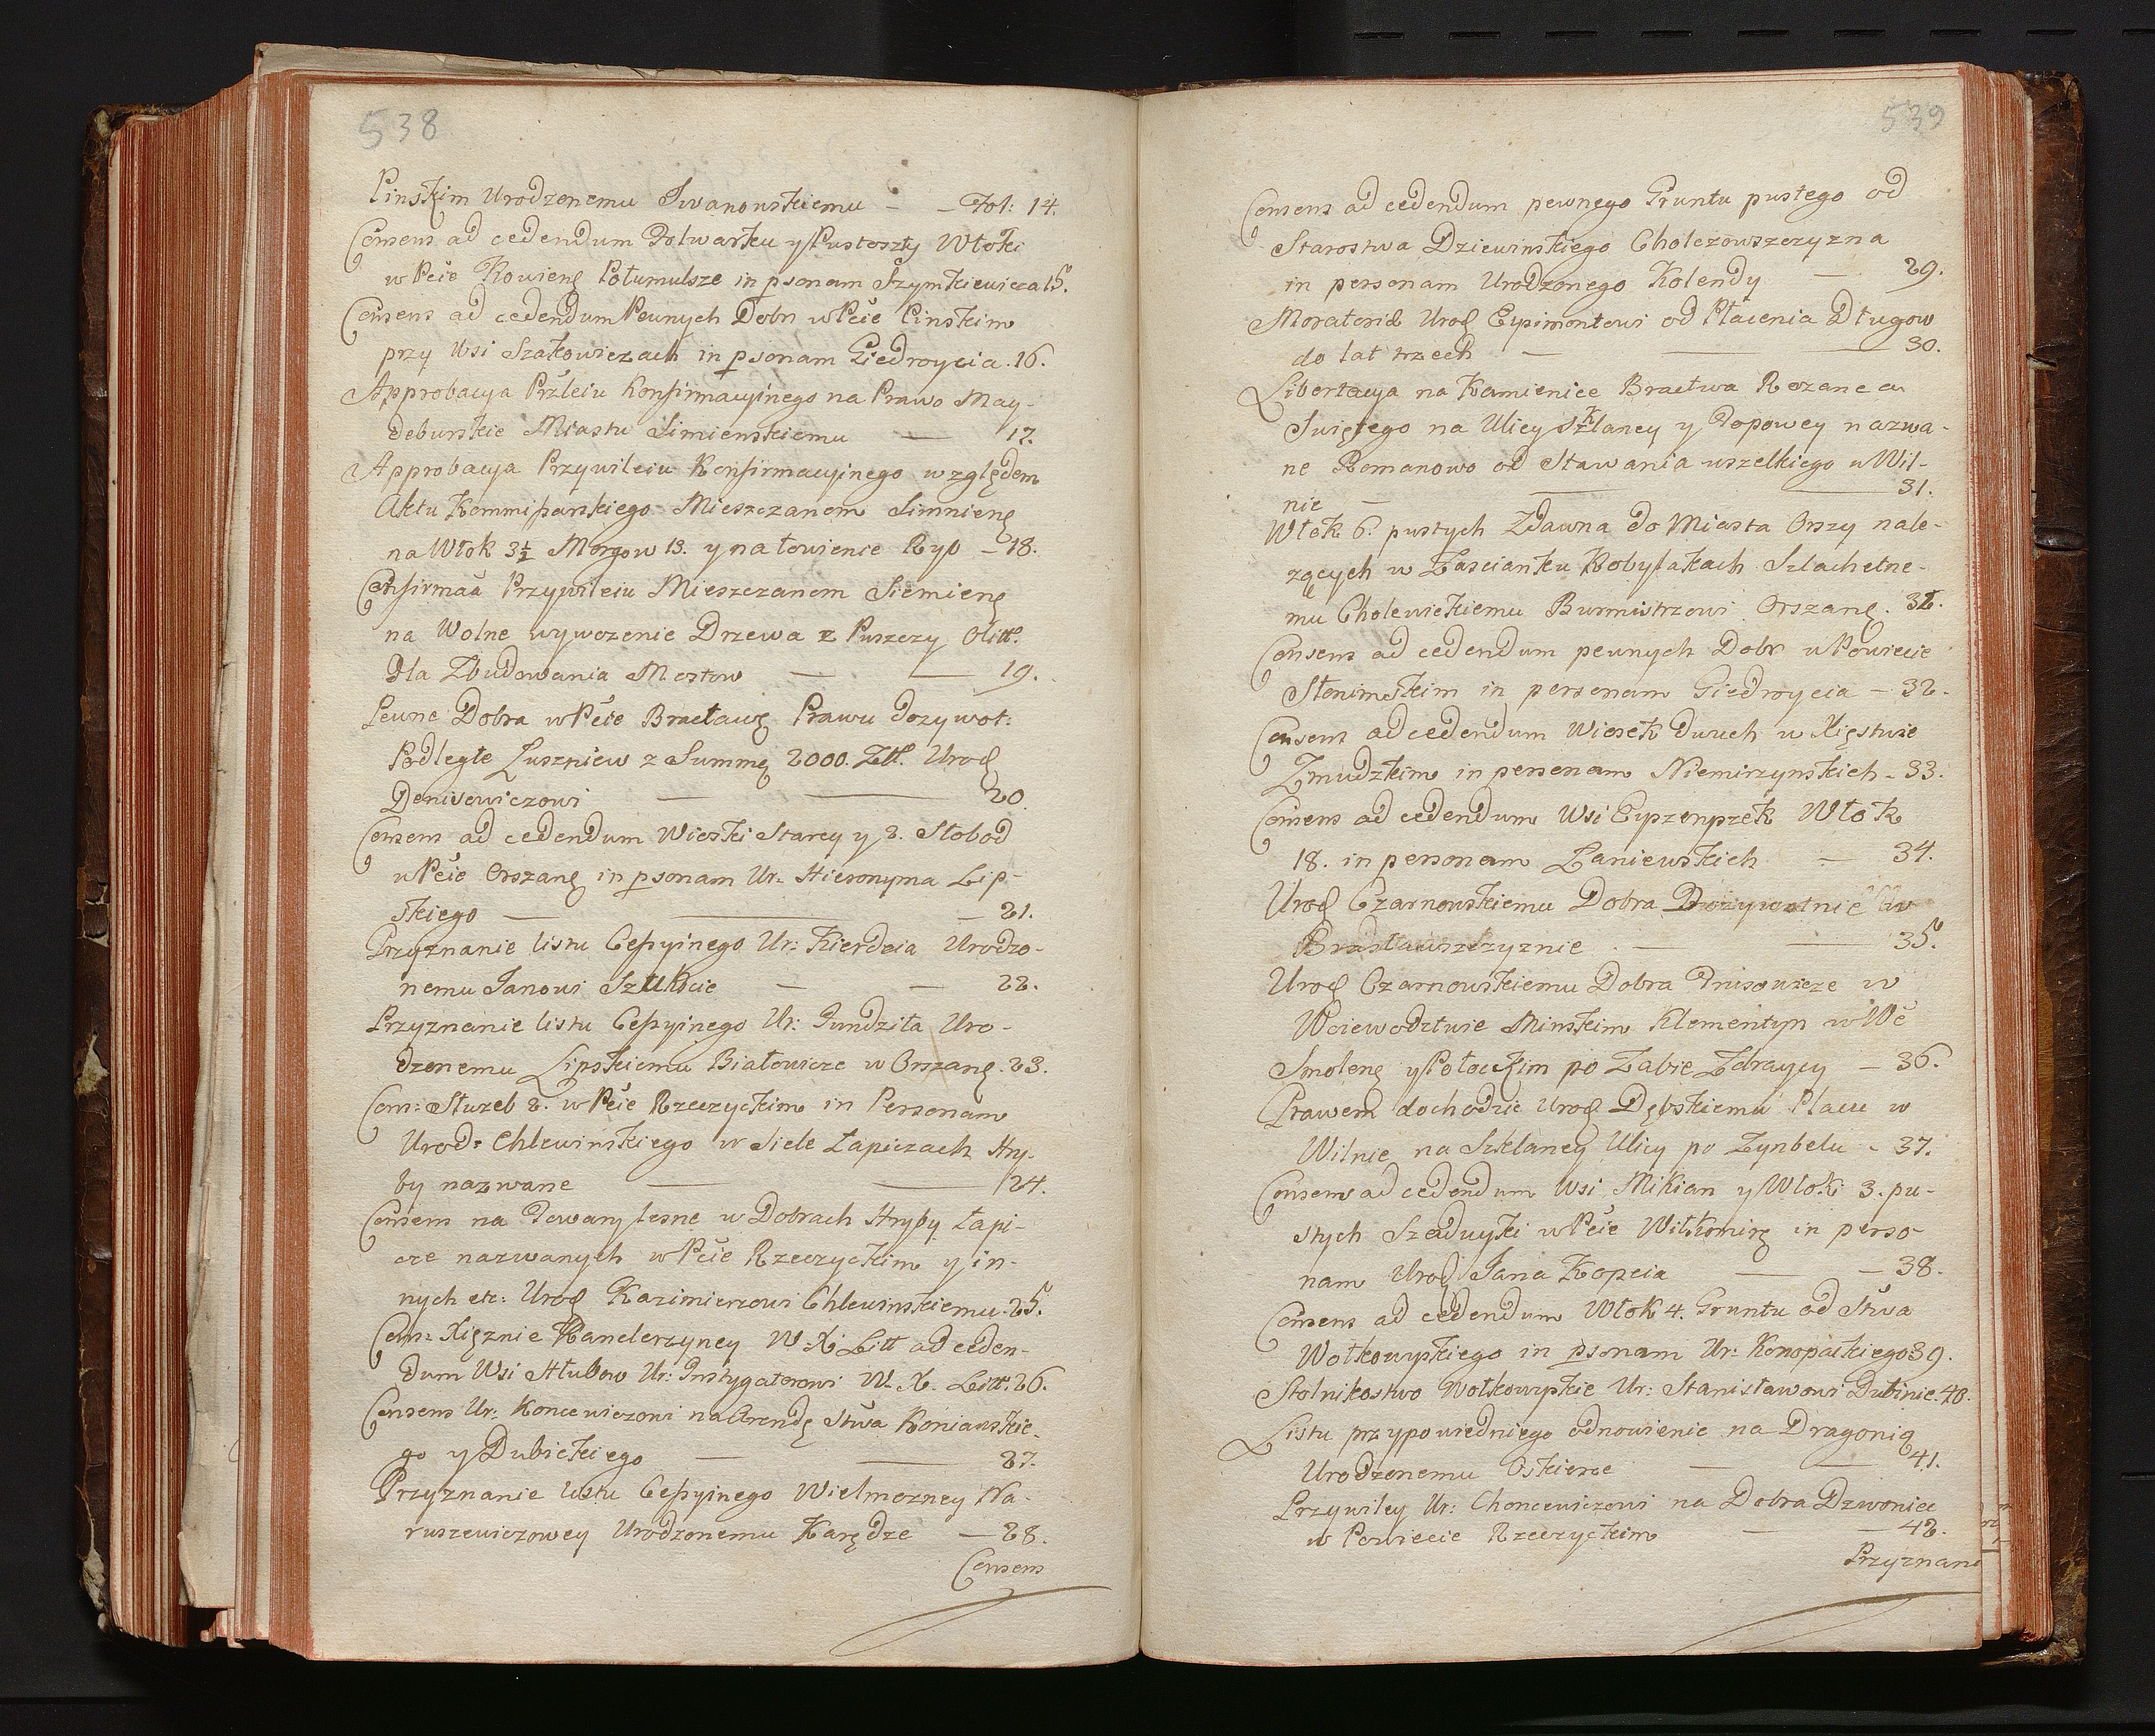 538
Pinskim Urodzonemu Iwanowskiemu – – Fol: 14.
Consens ad cedendum Folwarku y Pustoszy Włoki
w Pcie Kowieng Połumulsze in psonam Szymkiewicza 15.
Consens ad cedendum Pewnych Dobr w Pcie Pinskim
przy Wsi Szakowiczach in psonam Giedroycia. 16.
Approbacya Przleiu Konfirmacyinego na Prawo May-
deburskie Miastu Simienskiemu — 17.
Approbacya Przywileiu Konfirmacyinego względem
Aktu Kommissarskiego Mieszczanom Simnieng
na Włok 3½ Morgow 13. y na łowienie Ryb – 18.
Confirmaã Przywileiu Mieszczanom Siemieng
na Wolne wywozenie Drzewa z Puszczy Olitt.
dla Zbudowania Mostow — — 19.
Pewne Dobra w Pcie Bracławg Prawu dozywot:
Podległe Łuszniew z Summą 2000. Ztt. Urod
Denisowiczowi — — 20.
Consens ad cedendum Wioski Starey y 2. Słobod
w Pcie Orszang in psonam Ur: Hieronyma Lip-
skiego — — – 21.
Przyznanie listu Cessyinego Ur: Kierdeia Urodzo-
nemu Janowi Sztukocie — — 22.
Przyznanie listu Cessyinego Ur: Gundziła Uro-
dzonemu Lipskiemu Białowicze w Orszang. 23.
Cons: Słuzeb 2. w Pcie Rzeczyckim in Personam
Urod: Chlewinskiego w Siele Łapiczach Hry-
by nazwane — — 24.
Consens na Towary lesne w Dobrach Hryby Łapi-
cze nazwanych w Pcie Rzeczyckim y in-
nych etc: Urod Kazimierzowi Chlewinskiemu. 25.
Cons: Xięznie Kanclerzyney W. X. Litt ad ceden-
dum Wsi Hłubow Ur: Instygatorowi W. X. Litt. 26.
Consens Ur: Koncewiczowi na Arendę Stwa Koniawskie-
go y Dubickiego — — 27.
Przyznanie listu Cessyinego Wielmozney Na-
ruszewiczowey Urodzonemu Karędze — 28.
Consens
539
Consens ad cedendum pewnego Gruntu pustego od
Starostwa Dziewinskiego Cholezowszczyzna
in personam Urodzonego Kolendy — 29.
Moratoriã Urod Eypimontowi od Płacenia Długow
do lat trzech — — 30.
Libertacya na Kamienice Bractwa Rozanca
Swiętego na Ulicy Szklaney y Popowey nazwa-
ne Romanowo od Stawania wszelkiego w Wil-
nie — — — 31.
Włok 6. pustych Zdawna do Miasta Orszy nale-
zących w Zascianku Kobylakach Szlachetne-
mu Cholewickiemu Burmistrzowi Orszang. 32.
Consens ad cedendum pewnych Dobr w Powiecie
Słonimskim in personam Giedroycia – 32.
Consens ad cedendum Wiosek dwuch w Xięstwie
Zmudzkim in personam Niemirzynskich – 33.
Consens ad cedendum Wsi Eyprzenpzek Włok
18. in personam Łaniewskich — 34.
Urod Czarnowskiemu Dobra Dozywotnie w
Brasławszczyznie — — 35.
Urod Czarnowskiemu Dobra Prusowicze w
Woiewodztwie Minskim Klementyn w We
Smoleng y Połockim po Zabie Zdraycy – 36.
Prawem dochodzic Urod Dębskiemu Placu w
Wilnie na Szklaney Ulicy po Zynbelu – 37.
Consens ad cedendum Wsi Mikian y Włoki 3. pu-
stych Szedwyki w Pcie Wiłkomirg in perso-
nam Urod Jana Kopcia — – 38.
Consens ad cedendum Włok 4. Gruntu od Stwa
Wołkowyskiego in psonam Ur: Konopackiego 39.
Stolnikostwo Wołkowyskie Ur: Stanisławowi Dubinie. 40.
Listu przypowiedniego odnowienie na Dragonią
Urodzonemu Oskierce — — 41.
Przywiley Ur: Choncewiczowi na Dobra Dzwoniec
w Powiecie Rzeczyckim — — 42.
Przyznani